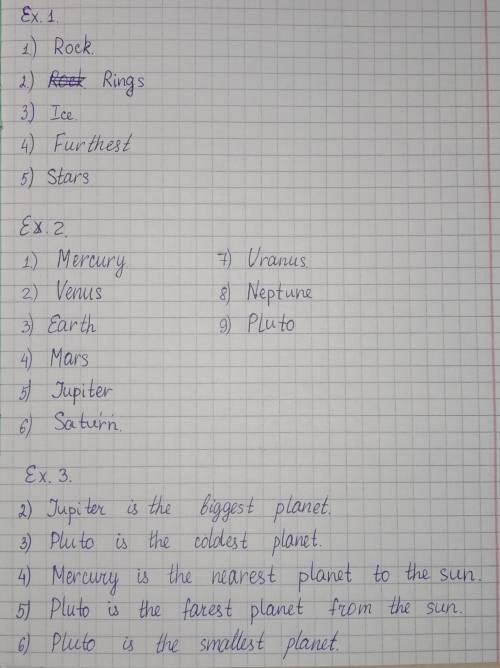 Ex. 1.
1) Rock.
2) Rock Rings
3) Ice.
4) Furthest
5) Stars
Ex. 2.
1) Mercury.
2) Venus
3) Earth
4) Mars
5) Jupiter
6) Saturn.
7) Uranus.
8) Neptune
9) Pluto
Ex. 3.
2) Jupiter is the biggest planet.
3) Pluto is the coldest planet.
4) Mercury is the nearest planet to the sun.
5) Pluto is the farest planet from the sun.
6) Pluto is the smallest planet.